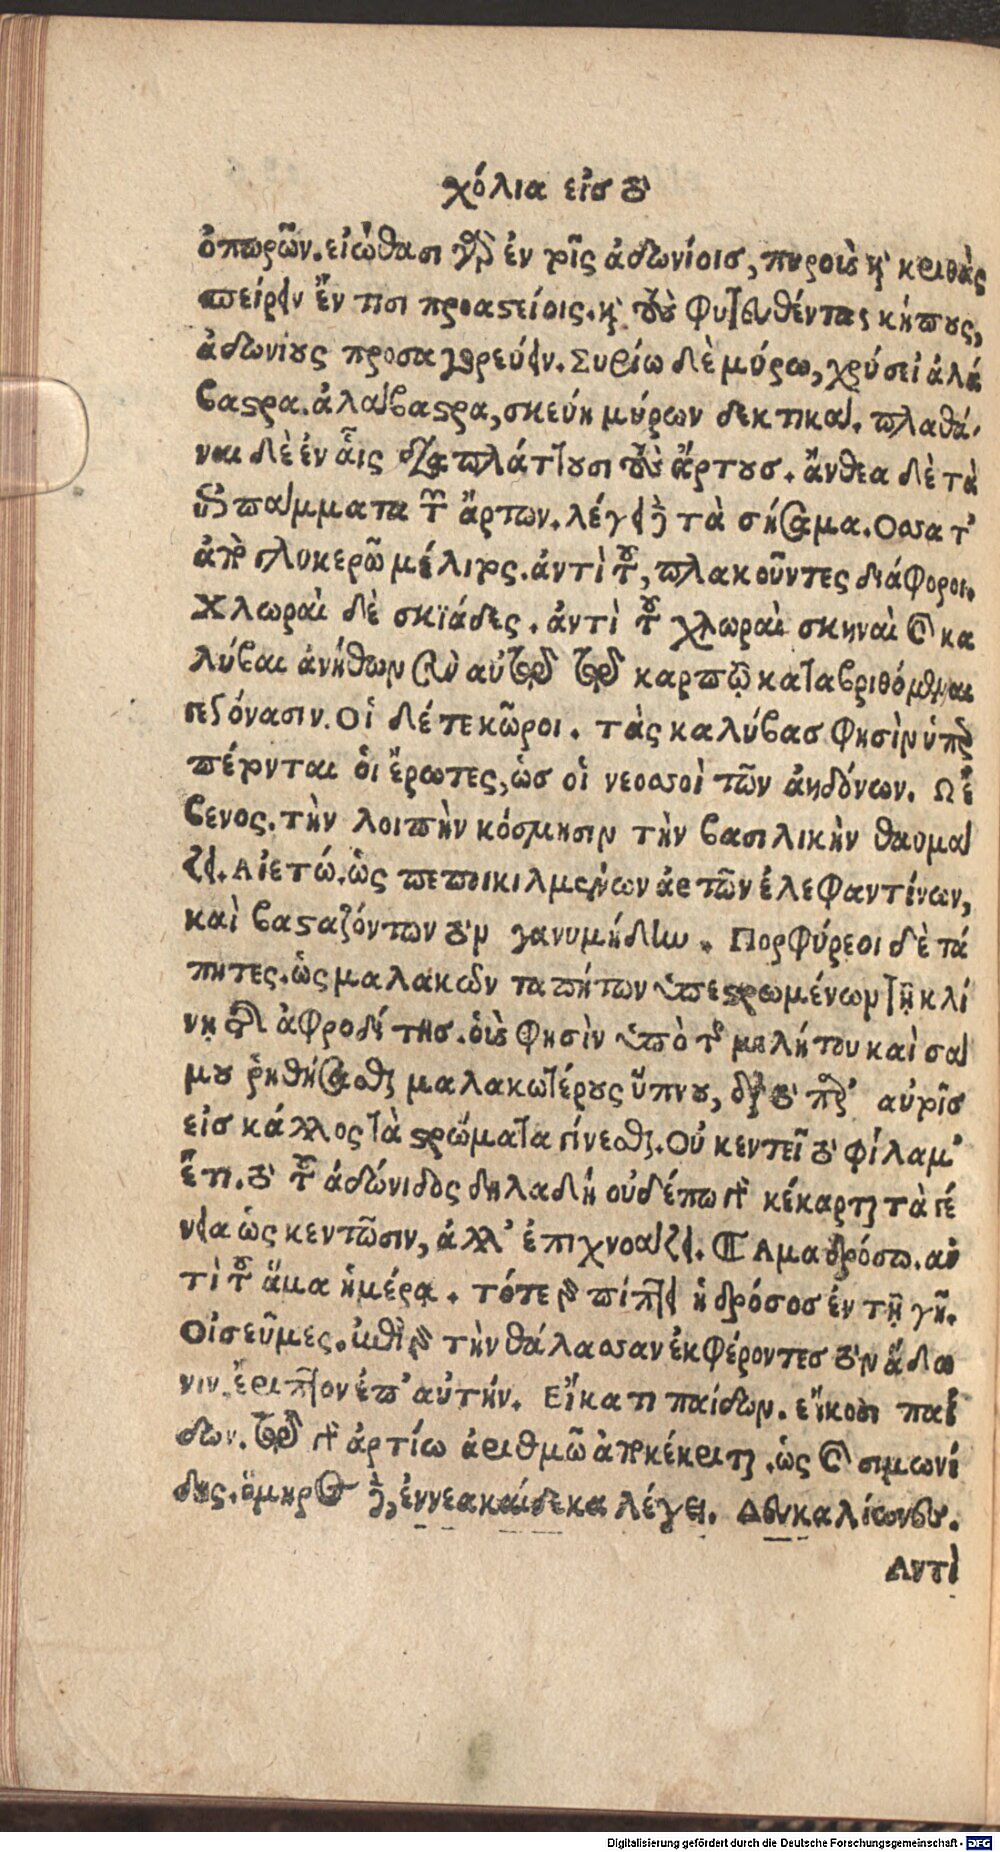 χόλια εἰσ τὸ
ὀπωρῶν. εἰώθασι γὰρ ἐν τοῖς ἀδωνίοισ, πυροὺς καὶ κριθὰς
σπείρειν ἔν τισι προαστείοις. καὶ τοὺς φυτευθέντας κήπους,
ἀδωνίους προσαγορεύειν. Συρίω δὲ μύρω, χρύσει ἀλά
βαστρα. ἀλάβαστρα, σκεύη μύρων δεκτικά. πλαθά-
ναι δὲ ἐν αἷς διαπλάττουσι τοὺς ἄρτουσ. ἄνθεα δὲ τὰ
ἐπιπάσματα τῶν ἄρτων. λέγει δὲ τὰ σήσαμα. Οσσα τ'
ἀπὸ γλυκερῶ μέλιτος. ἀντὶ τοῦ, πλακοῦντες διάφοροι.
Χλωραὶ δὲ σκϊάδες. ἀντὶ τοῦ χλωραὶ σκηναὶ καὶ κα
λύβαι ἀνήθων σὺν αὐτῷ τῷ καρπῷ καταβριθόμεναι
γεγόνασιν. Οἱ δέ τε κῶροι. τὰς καλύβασ φησὶν ὑπερ
πέτονται οἱ ἔρωτες, ὡσ οἱ νεοσσοὶ τῶν ἀηδόνων. Ω ἔ
βενος. τὴν λοιπὴν κόσμησιν τὴν βασιλικὴν θαυμά
ζει. Αἰετώ. ὡς πεποικιλμένων ἀετῶν ἐλεφαντίνων,
καὶ βασταζόντων τὸν γανυμήδην. Πορφύρεοι δὲ τά
πητες. ὡς μαλακῶν ταπήτων ὑπεστρωμένων τῇ κλί
νῃ τῆς ἀφροδίτησ. οὓς φησὶν ὑπὸ τοῦ μιλήτου καὶ σά
μου ῥηθήσεσθαι μαλακωτέρους ὕπνου, διὰ τὸ παρ' αὐτοῖσ
εἰσ κάλλος τὰ στρώματα γίνεσθαι. Οὐ κεντεῖ τὸ φίλαμ'
ἔτι. τὸ τοῦ ἀδώνιδος δηλαδή οὐδέπω γὰρ κέκαρται τὰ γέ
νεια ὡς κεντῶσιν, ἀλλ' ἐπιχνοάζει. ¶ Αμα δρόσω. αν
τὶ τοῦ ἅμα ἡμέρα. τότε γὰρ πίπτει ἡ δρόσος ἐν τῇ γῇ.
Οἰσεῦμες. ἐπὶ γὰρ τὴν θάλασσαν ἐκφέροντεσ τὸν ἄδω
νιν, ἔριπτον ἐπ' αὐτήν. Εἴκατι παίδων. εἴκοσι παί
δων. τῷ γὰρ ἀρτίω ἀριθμῶ ἀποκέκριται. ὡς καὶ σιμωνί
δης. ὅμηρος δὲ, ἐννεακαίδεκα λέγει. Δευκαλίωνες.
Αντὶ
Digitalisierung gefördert durch die Deutsche Forschungsgemeinschaft - DFG